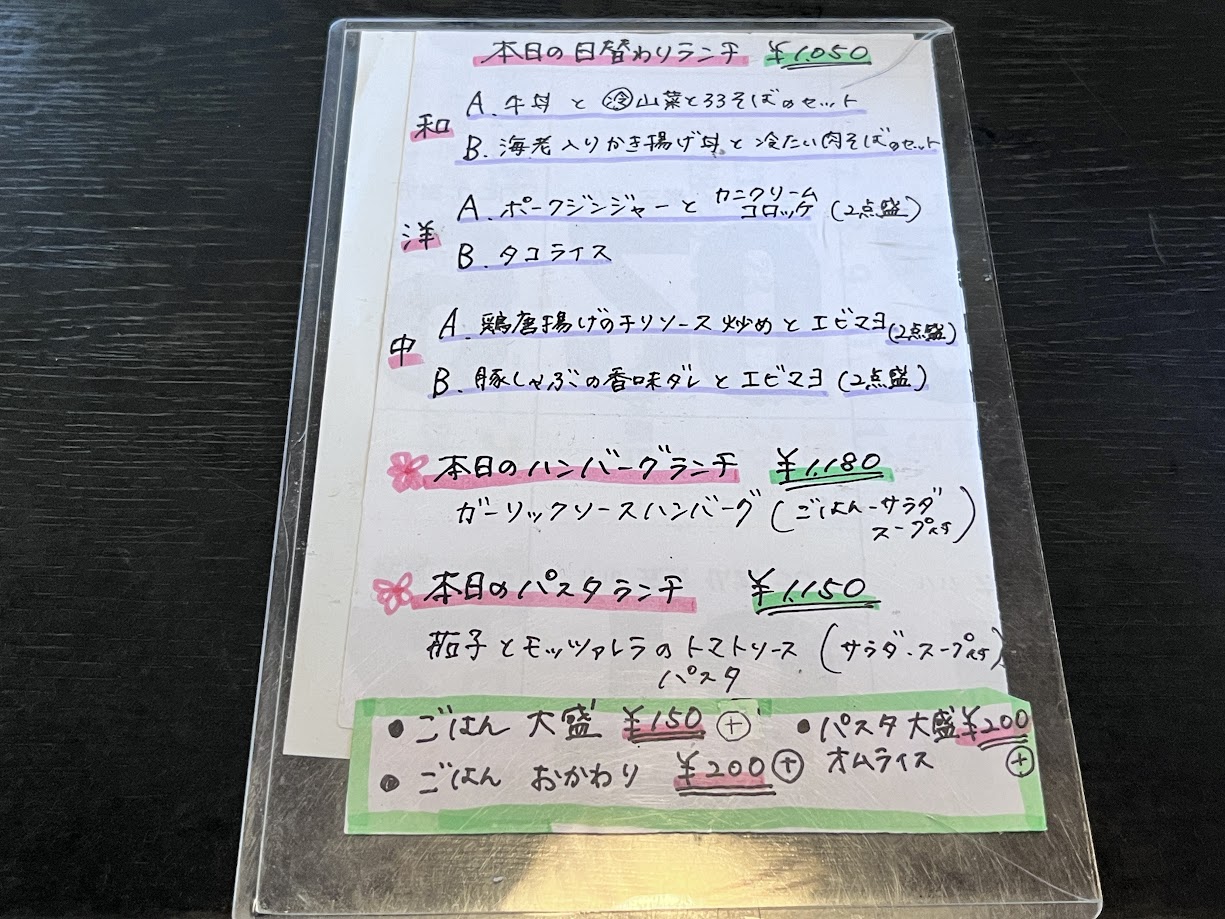 本日の日替わりランチ ¥1,050
和
A. 牛丼と㊀冷山菜とろろそばのセット
B. 海老入りかき揚げ丼と冷たい肉そばのセット
洋
A. ポークジンジャーとカニクリームコロッケ(2点盛)
B. タコライス
中
A. 鶏唐揚げのチリソース炒めとエビマヨ(2点盛)
B. 豚しゃぶの香味ダレとエビマヨ(2点盛)
本日のハンバーグランチ ¥1,180
ガーリックソースハンバーグ(ごはん・サラダ
スープ付)
本日のパスタランチ ¥1,150
茄子とモッツァレラのトマトソース(サラダ・スープ付)
パスタ
• ごはん 大盛 ¥150 ⊕
• ごはん おかわり ¥200 ⊕
• パスタ大盛 ¥200
オムライス ⊕